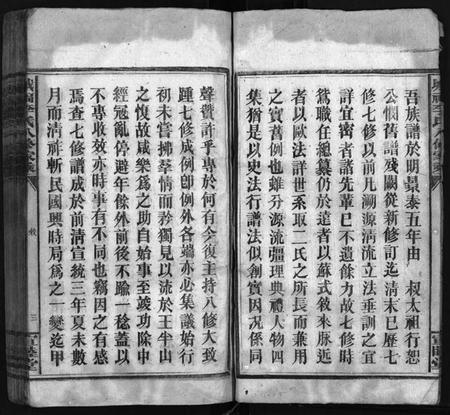 吾族譜於明景泰五年由　叔太祖行恕
公憫舊譜殘闕從新修訂迄清末已歷七
修七修以前凡溯源清流立法垂訓之宜
詳宜密者諸先輩已不遺餘力故七修時
鴛職在總纂仍於遠者以蘇式敘來脈近
者以歐法詳世系取二氏之所長而兼用
之實舊例也雖分源流疆理典禮人物四
集猶是以史法行譜法似創實因況係同
聲贊許乎專於何有余復主持八修大致
踵七修成例即例外各端亦必集議始行
初未嘗拂羣情而矜獨見以流於王半山
之愎故咸樂為之助自始事至竣功除中
經寇亂停避年餘外前後不踰一稔蓋以
不專收效亦時事有不同也竊因之有感
焉查七修譜成於前清宣統三年夏未數
月而清祚斬民國興時局為之一變迄甲
三